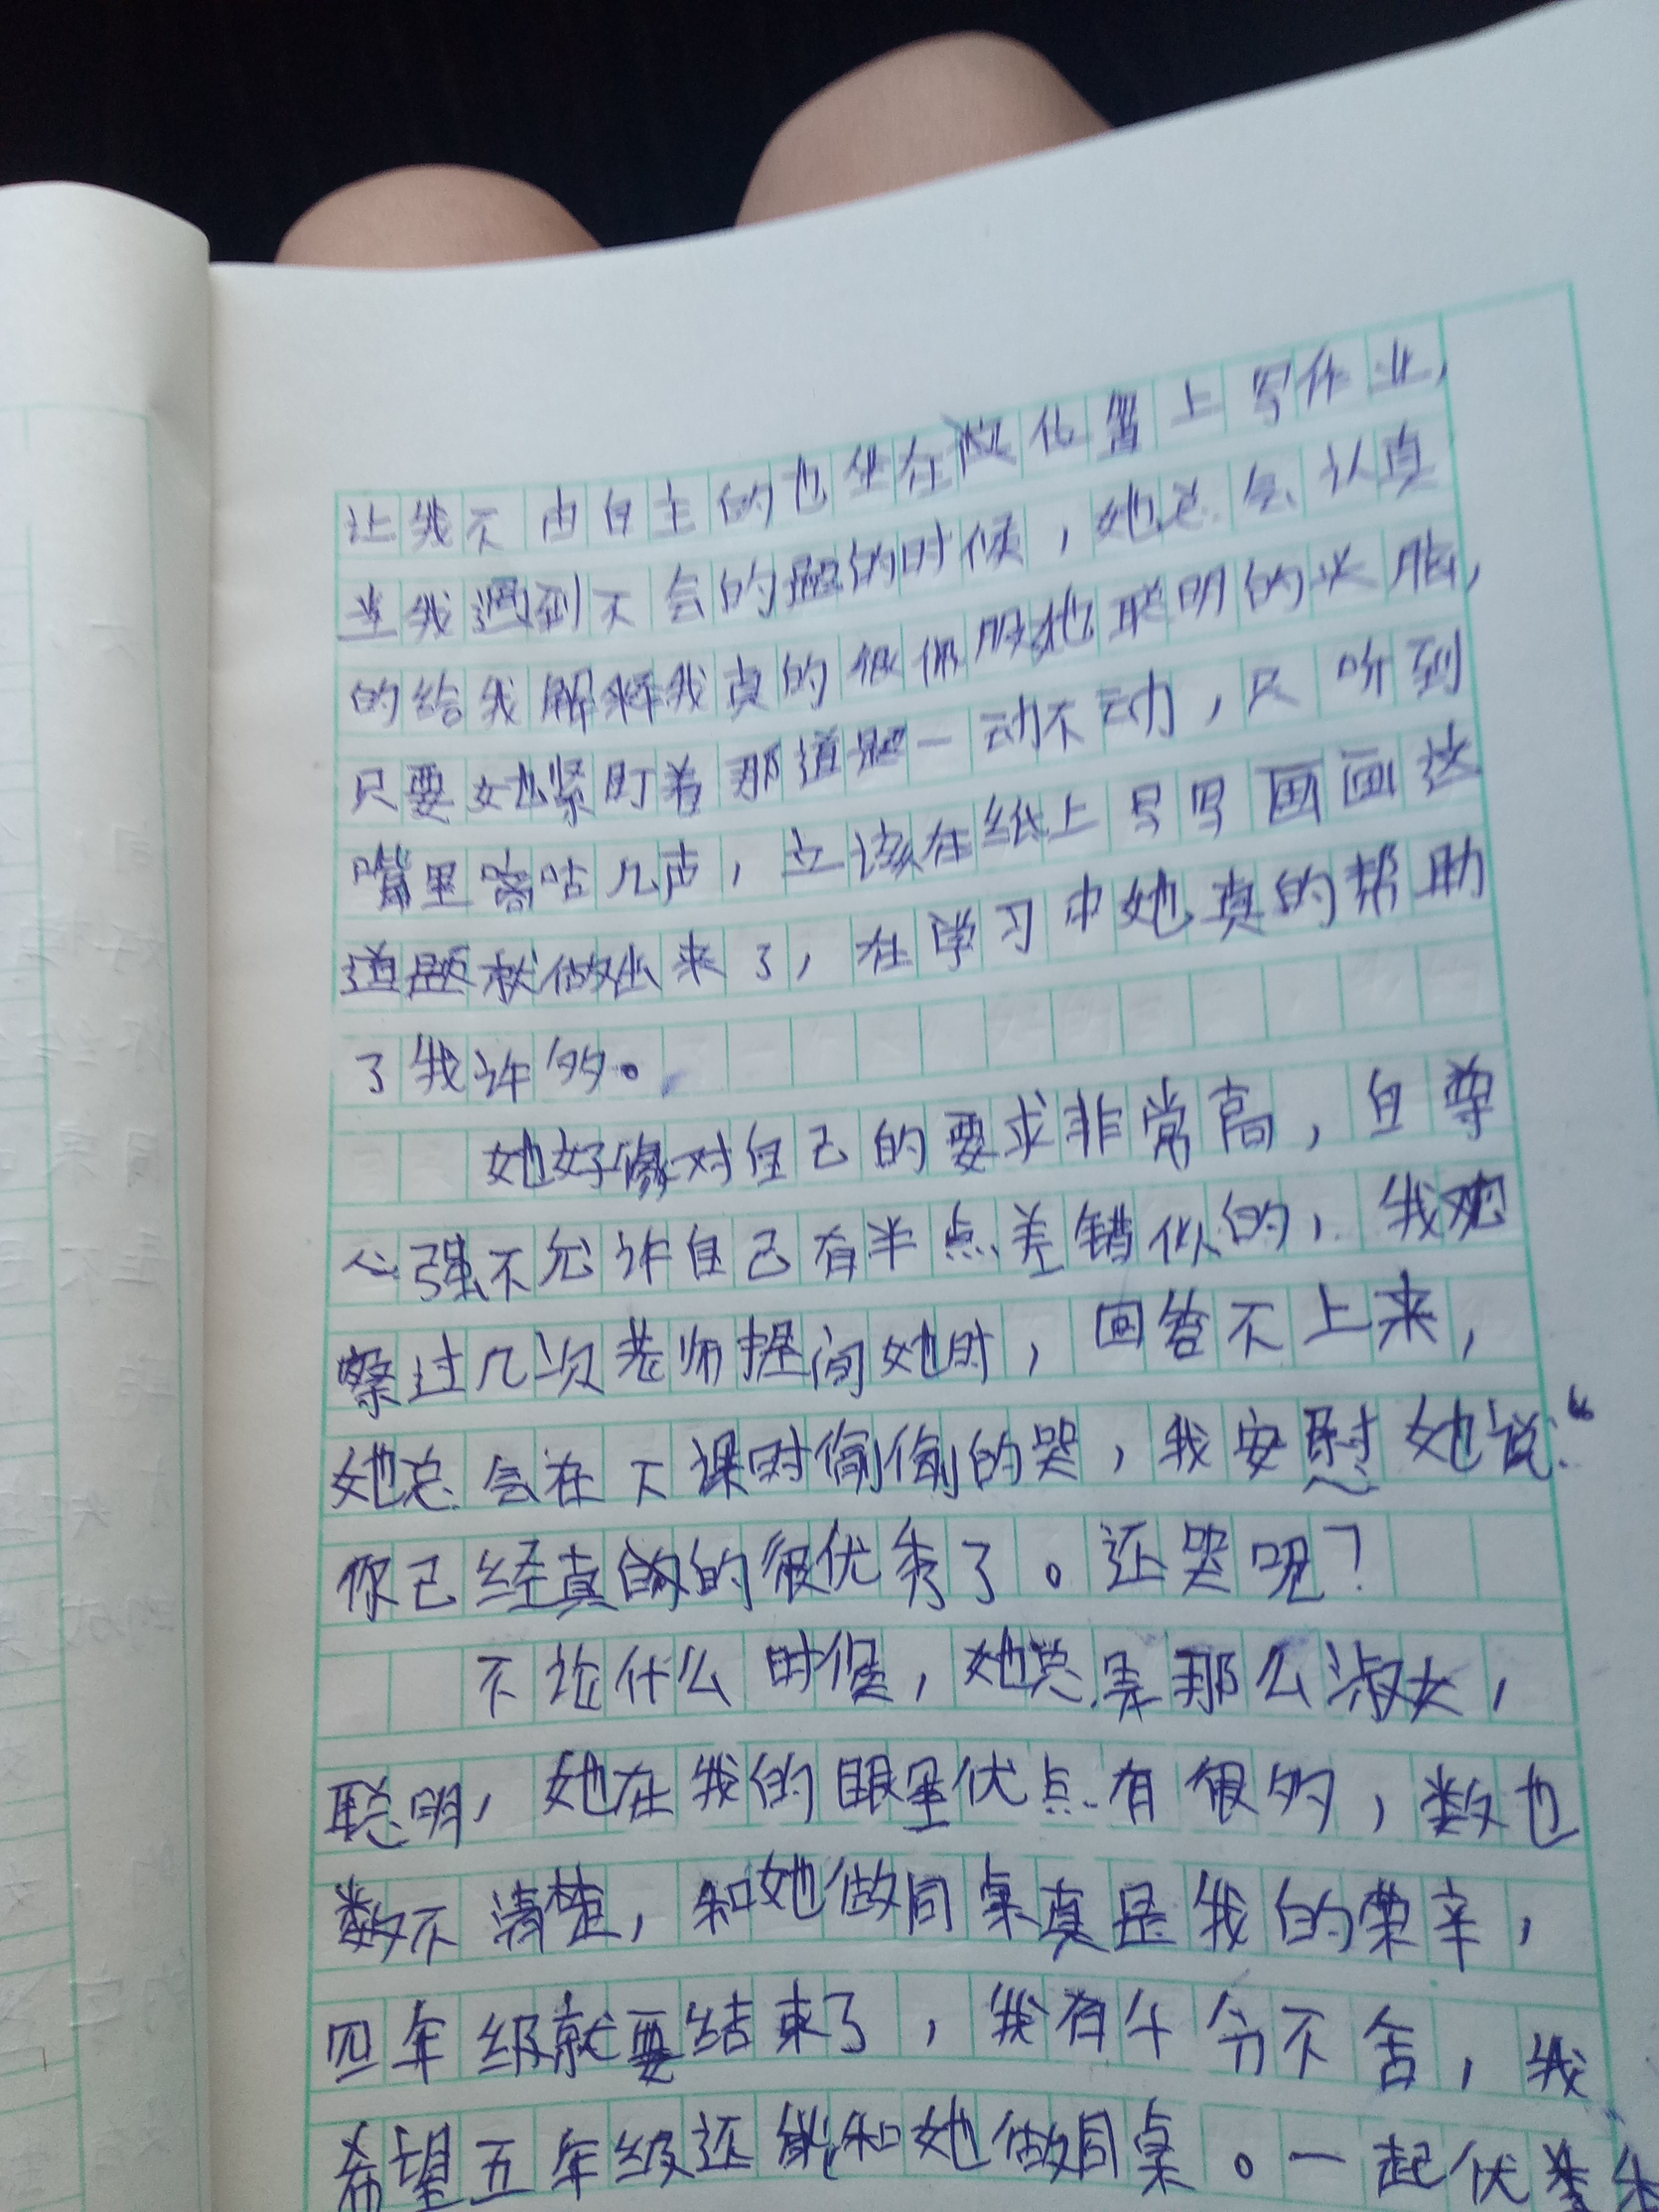 让我不由自主的也坐在位置上写作业，
当我遇到不会的题的时候，她总会认真
的给我解释我真的很佩服她聪明的头脑，
只要她紧盯着那道题一动不动，只听到
嘴里嘀咕几声，立该在纸上写写画画这
道题就做出来了，在学习中她真的帮助
了我许多。
她好像对自己的要求非常高，自尊
心强不允许自己有半点差错似的，我观
察过几次老师提问她时，回答不上来，
她总会在下课时偷偷的哭，我安慰她说：“
你已经真的很优秀了。还哭呢？
不论什么时候，她总是那么淑女，
聪明，她在我的眼里优点有很多，数也
数不清楚，和她做同桌真是我的荣幸，
四年级就要结束了，我有十分不舍，我
希望五年级还能和她做同桌。一起优